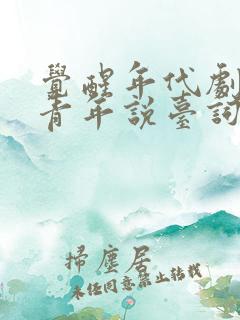 覺醒年代劇
青年說臺詞
掃塵居
未經同意禁止轉載